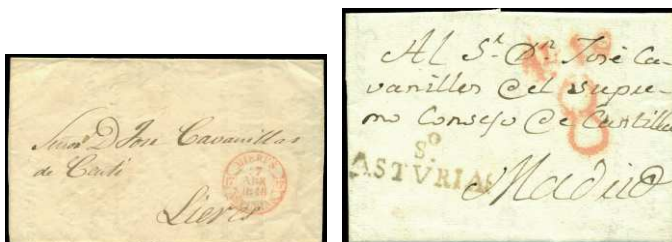 Señor D Jose Cavanillas
de Conti
Lieres
Al Sr. Dn. José Ca-
vanilles del supre-
mo Consejo de Castilla
8
So
ASTURIAS
Madrid